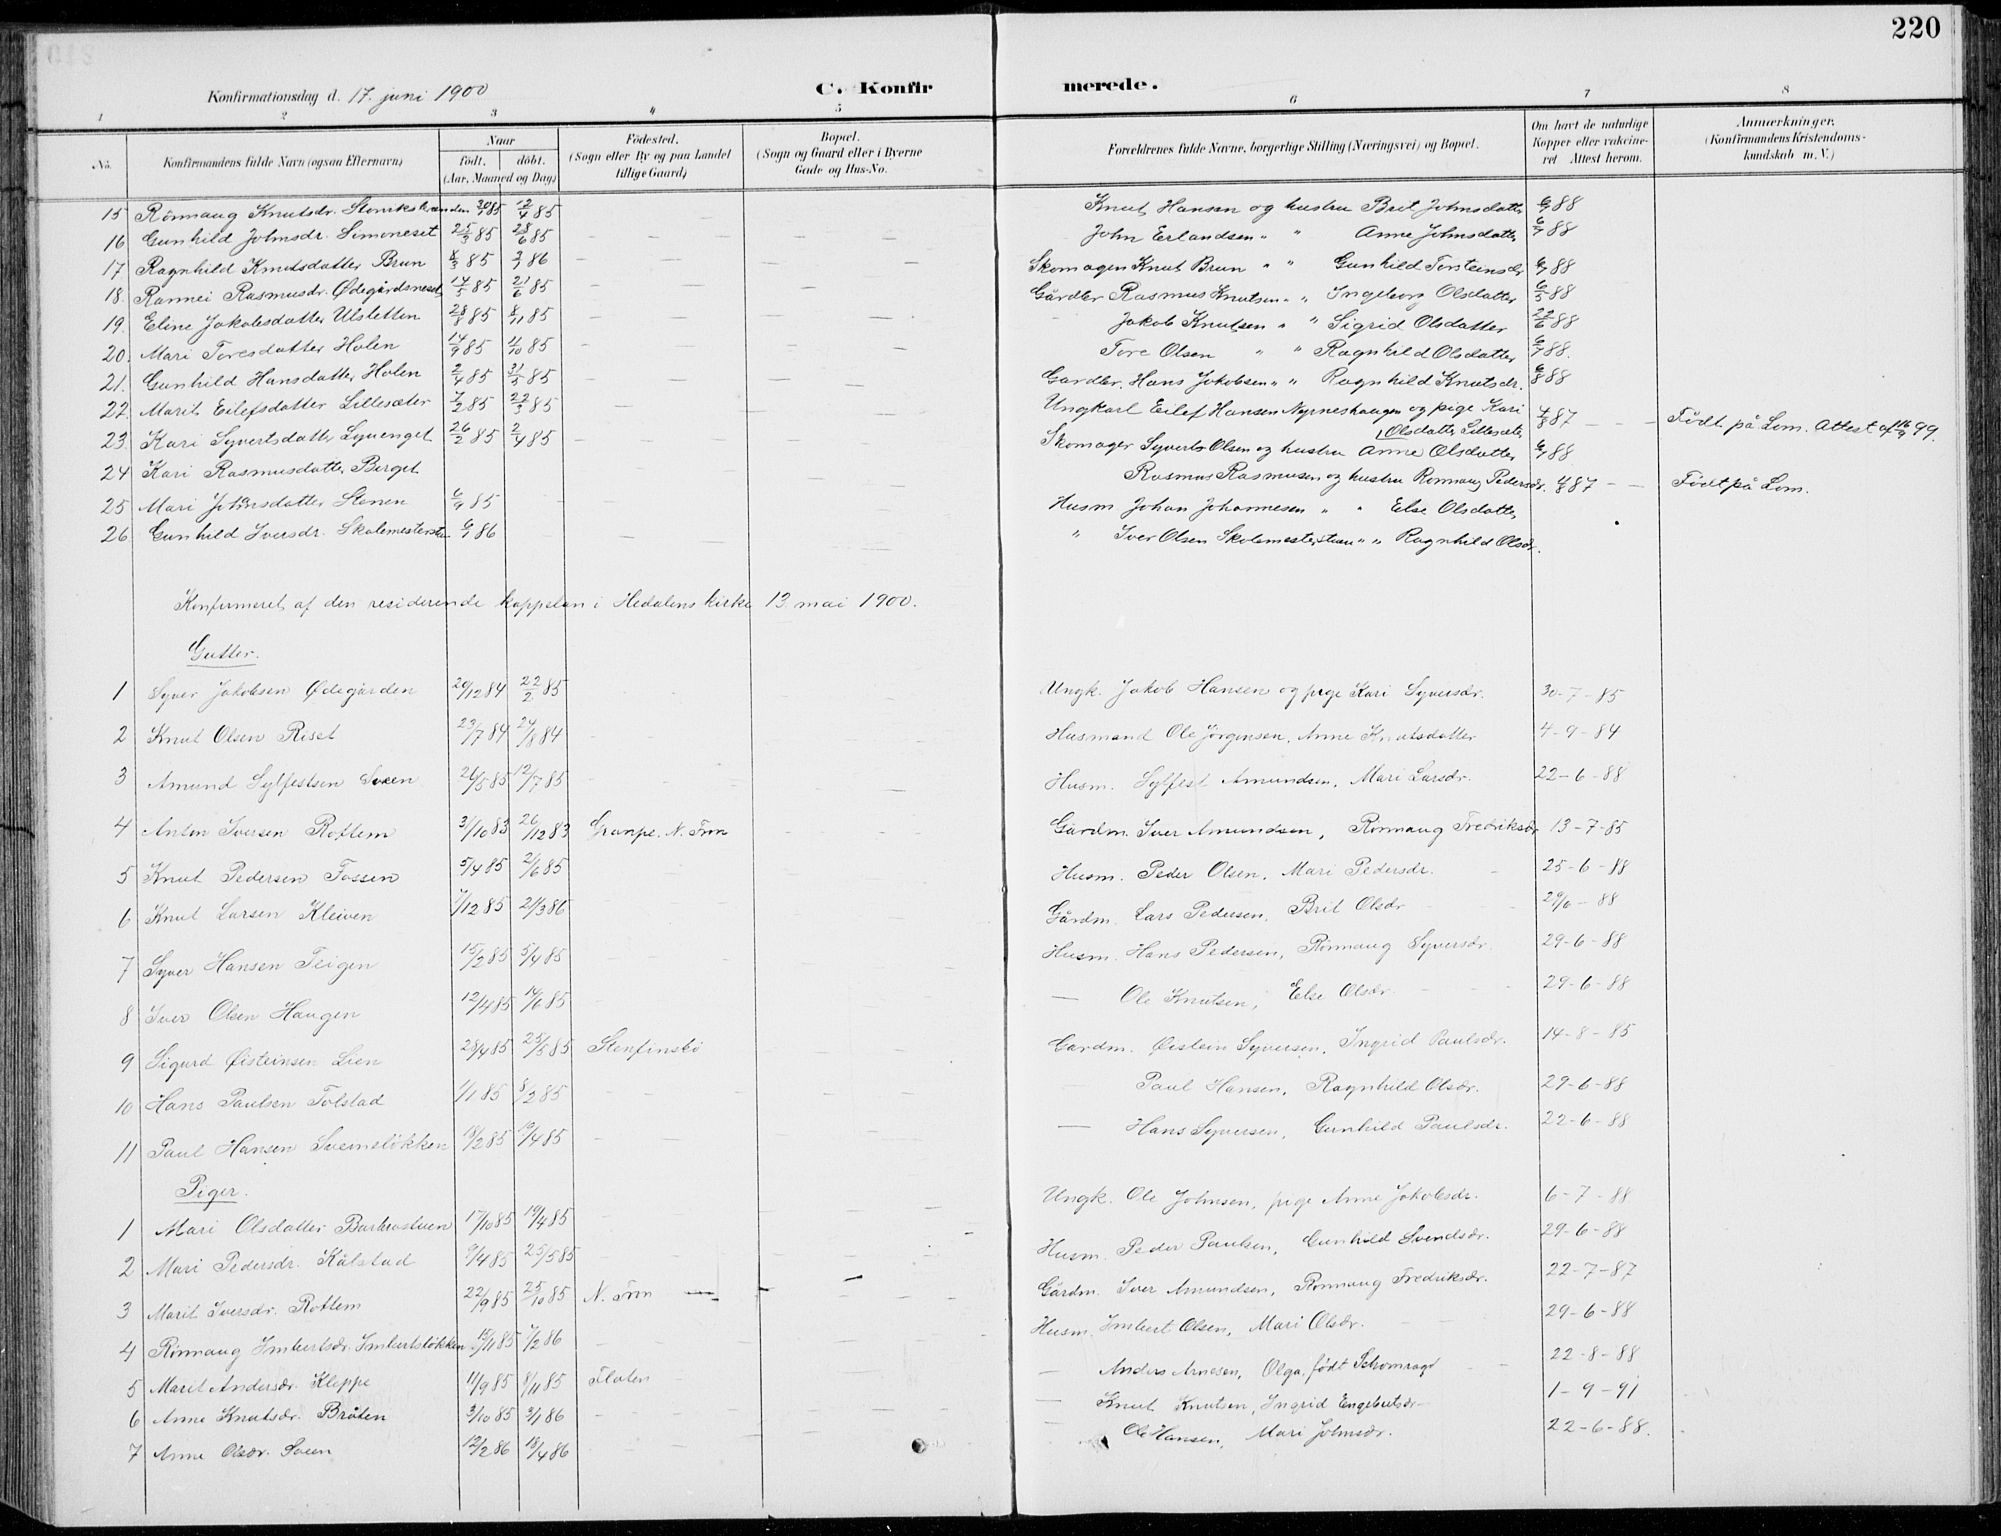 220
Konfirmationsdag d. 17. juni 1900
C. Konfirmerede.
1 2 3 4 5 6 7 8
No.
Konfirmandens fulde Navn (ogsaa Efternavn)
Naar
født. døbt.
(Aar, Maaned og Dag)
Fødested.
(Sogn eller By og paa Landet
tillige Gaard)
Bopæl.
(Sogn og Gaard eller i Byerne
Gade og Hus-No.
Forældrenes fulde Navne, borgerlige Stilling (Næringsvei) og Bopæl.
Om havt de naturlige
Kopper eller vakcine-
ret Attest herom.
Anmærkninger.
(Konfirmandens Kristendoms-
kundskab m. V.)
15 Rönnaug Knutsdr. 85 12/4 85 Knut Hansen og hustru Brit Johnsdatter 88
16 Gunhild Johnsdr. Simoneset 25/3 85 28/6 85 — — — John Erlandsen " " Anne Johnsdatter 6/7 88
17 Ragnhild Knutsdatter Brun 85 86 — — — Skomager Knut Brun " " Gunhild Torsteinsdr. 88
18. Rannei Rasmusdr. Ødegårdsneset 14/5 85 21/6 85 — — — Gårdbr. Rasmus Knutsen " " Ingeborg Olsdatter 88
19. Eline Jakobsdatter Ulsletten 28/8 85 8/11 85 — — — Jakob Knutsen " " Sigrid Olsdatter 22/6 88
20. Mari Toresdatter Holen 14/9 85 85 — — — Tore Olsen " " Ragnhild Olsdatter 6/7 88.
21. Gunhild Hansdatter Holen 2/4 85 31/5 85 — — — Gardbr. Hans Jakobsen " " Ragnhild Knutsdr. 88
22. Marit Eilefsdatter Lillesæter 7/2 85 22/3 85 — — — Ungkarl Eilef Hansen Nyrneshaugen og pige Kari
Olsdatter Lillesæter 4/8 87 — — Født på Lom. Attest af 99.
23. Kari Syvertsdatter 26/2 85 2/4 85 — — — Skomager Syvert Olsen og hustru Anne Olsdatter 88
24 Kari Rasmusdatter Berget Rasmus Rasmusen og hustru Rönnaug Pedersdr. 4/8 87 — — Født på Lom.
25 Mari Johnsdatter Stenen 85 — — — Husm Johan Johannesen " " Else Olsdatter
26 Gunhild Iversdr. Skolemesterstuen 86 — — — " Iver Olsen Skolemesterstuen " " Ragnhild Olsdr.
Konfirmeret af den residerende kappelan i Hedalens kirke 13. mai 1900.
Gutter.
1 Syver Jakobsen Ødegården 29/12 84 22/2 85 — — — Ungk. Jakob Hansen og pige Kari Syversdr. 30-7-85
2 Knut Olsen Riset 84 24/8 84 — — — Husmand Ole Jörgensen, Anne Knutsdatter 4-9-84
3 Amund Sylfestsen Sveen 26/5 85 12/7 85 — — — Husm. Sylfest Amundsen, Mari Larsdr. 22-6-88
4 Anton Iversen Rottem 3/10 83 26/12 83 N. Fron — — Gårdm. Iver Amundsen, Rönnaug Fredriksdr. 13-7-85
5 Knut Pedersen Fossen 5/4 85 2/6 85 — — — Husm. Peder Olsen, Mari Pedersdr. 25-6-88
6 Knut Larsen Kleiven 7/12 85 21/3 86 — — — Gårdm. Lars Pedersen, Brit Olsdr 29/6-88
7 Syver Hansen Teigen 15/2 85 5/4 85 — — — Husm. Hans Pedersen, Rönnaug Syversdr. 29-6-88
8 Iver Olsen Haugen 12/4 85 14/6 85 — — — — Ole Knutsen, Else Olsdr. 29-6-88
9 Sigurd Øisteinsen Lien 28/4 85 25/5 85 — — Gardm. Øistein Syversen, Ingrid Paulsdr. 14-8-85
10 Hans Paulsen Tolstad 1/1 85 8/2 85 — — — — Paul Hansen, Ragnhild Olsdr. 29-6-88
11 Paul Hansen Sveinsløkken 18/2 85 19/4 85 — — — — Hans Syversen, Gunhild Paulsdr. 22-6-88
Piger.
1 Mari Olsdatter Barbrostuen 17/10 85 19/4 85 — — — Ungk. Ole Johnsen, pige Anne Jakobsdr. 6-7-88
2 Mari Pedersdr. Kålstad 9/4 85 25/5 85 — — — Husm. Peder Paulsen, Gunhild Svendsdr. 29-6-88
3 Marit Iversdr. Rottem 22/9 85 25/10 85 N. Fron — — — Gårdm. Iver Amundsen, Rönnaug Fredriksdr. 22-7-87
4 Rönnaug Imbertsdr. Imbertsløkken 15/11 85 7/2 86 — — Husm. Imbert Olsen, Mari Olsdr. 29-6-88
5 Marit Andersdr. Kleppe 11/9 85 8/11 85 Floten — — — Anders Arnesen, Olga, født 22-8-88
6 Anne Knutsdr. Bråten 3/10 85 3/1 86 — — — — Knut Knutsen, Ingrid Engebretsdr. 1-9-91
7 Anne Olsdr. Sveen 12/2 86 18/4 86 — — — — Ole Hansen, Mari Johnsdr. 22-6-88.